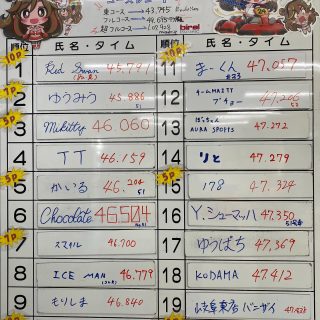 東コース → 43.745
フルコース →
超フルコース
birel
順位 氏名・タイム 順位 氏名・タイム
1 Red Swan 45.771
2 ゆうみう 45.886 51
3 Mikitty 46.060
4 TT 46.159
5 かいる 46.204 51
6 Chocolate 46.504
7 スマイル 46.700
8 ICE MAN 46.779
9 もりしま 46.840
11 まーくん 47.057
12 チームMAZTY 47.206
13 ぽっちゃん AURA SPORTS 47.272
14 りと 47.279
15 178 47.324
16 Y.シューマッハ 47.350
17 ゆうぱち 47.369
18 KODAMA 47.412
19 岐阜東店バンザイ